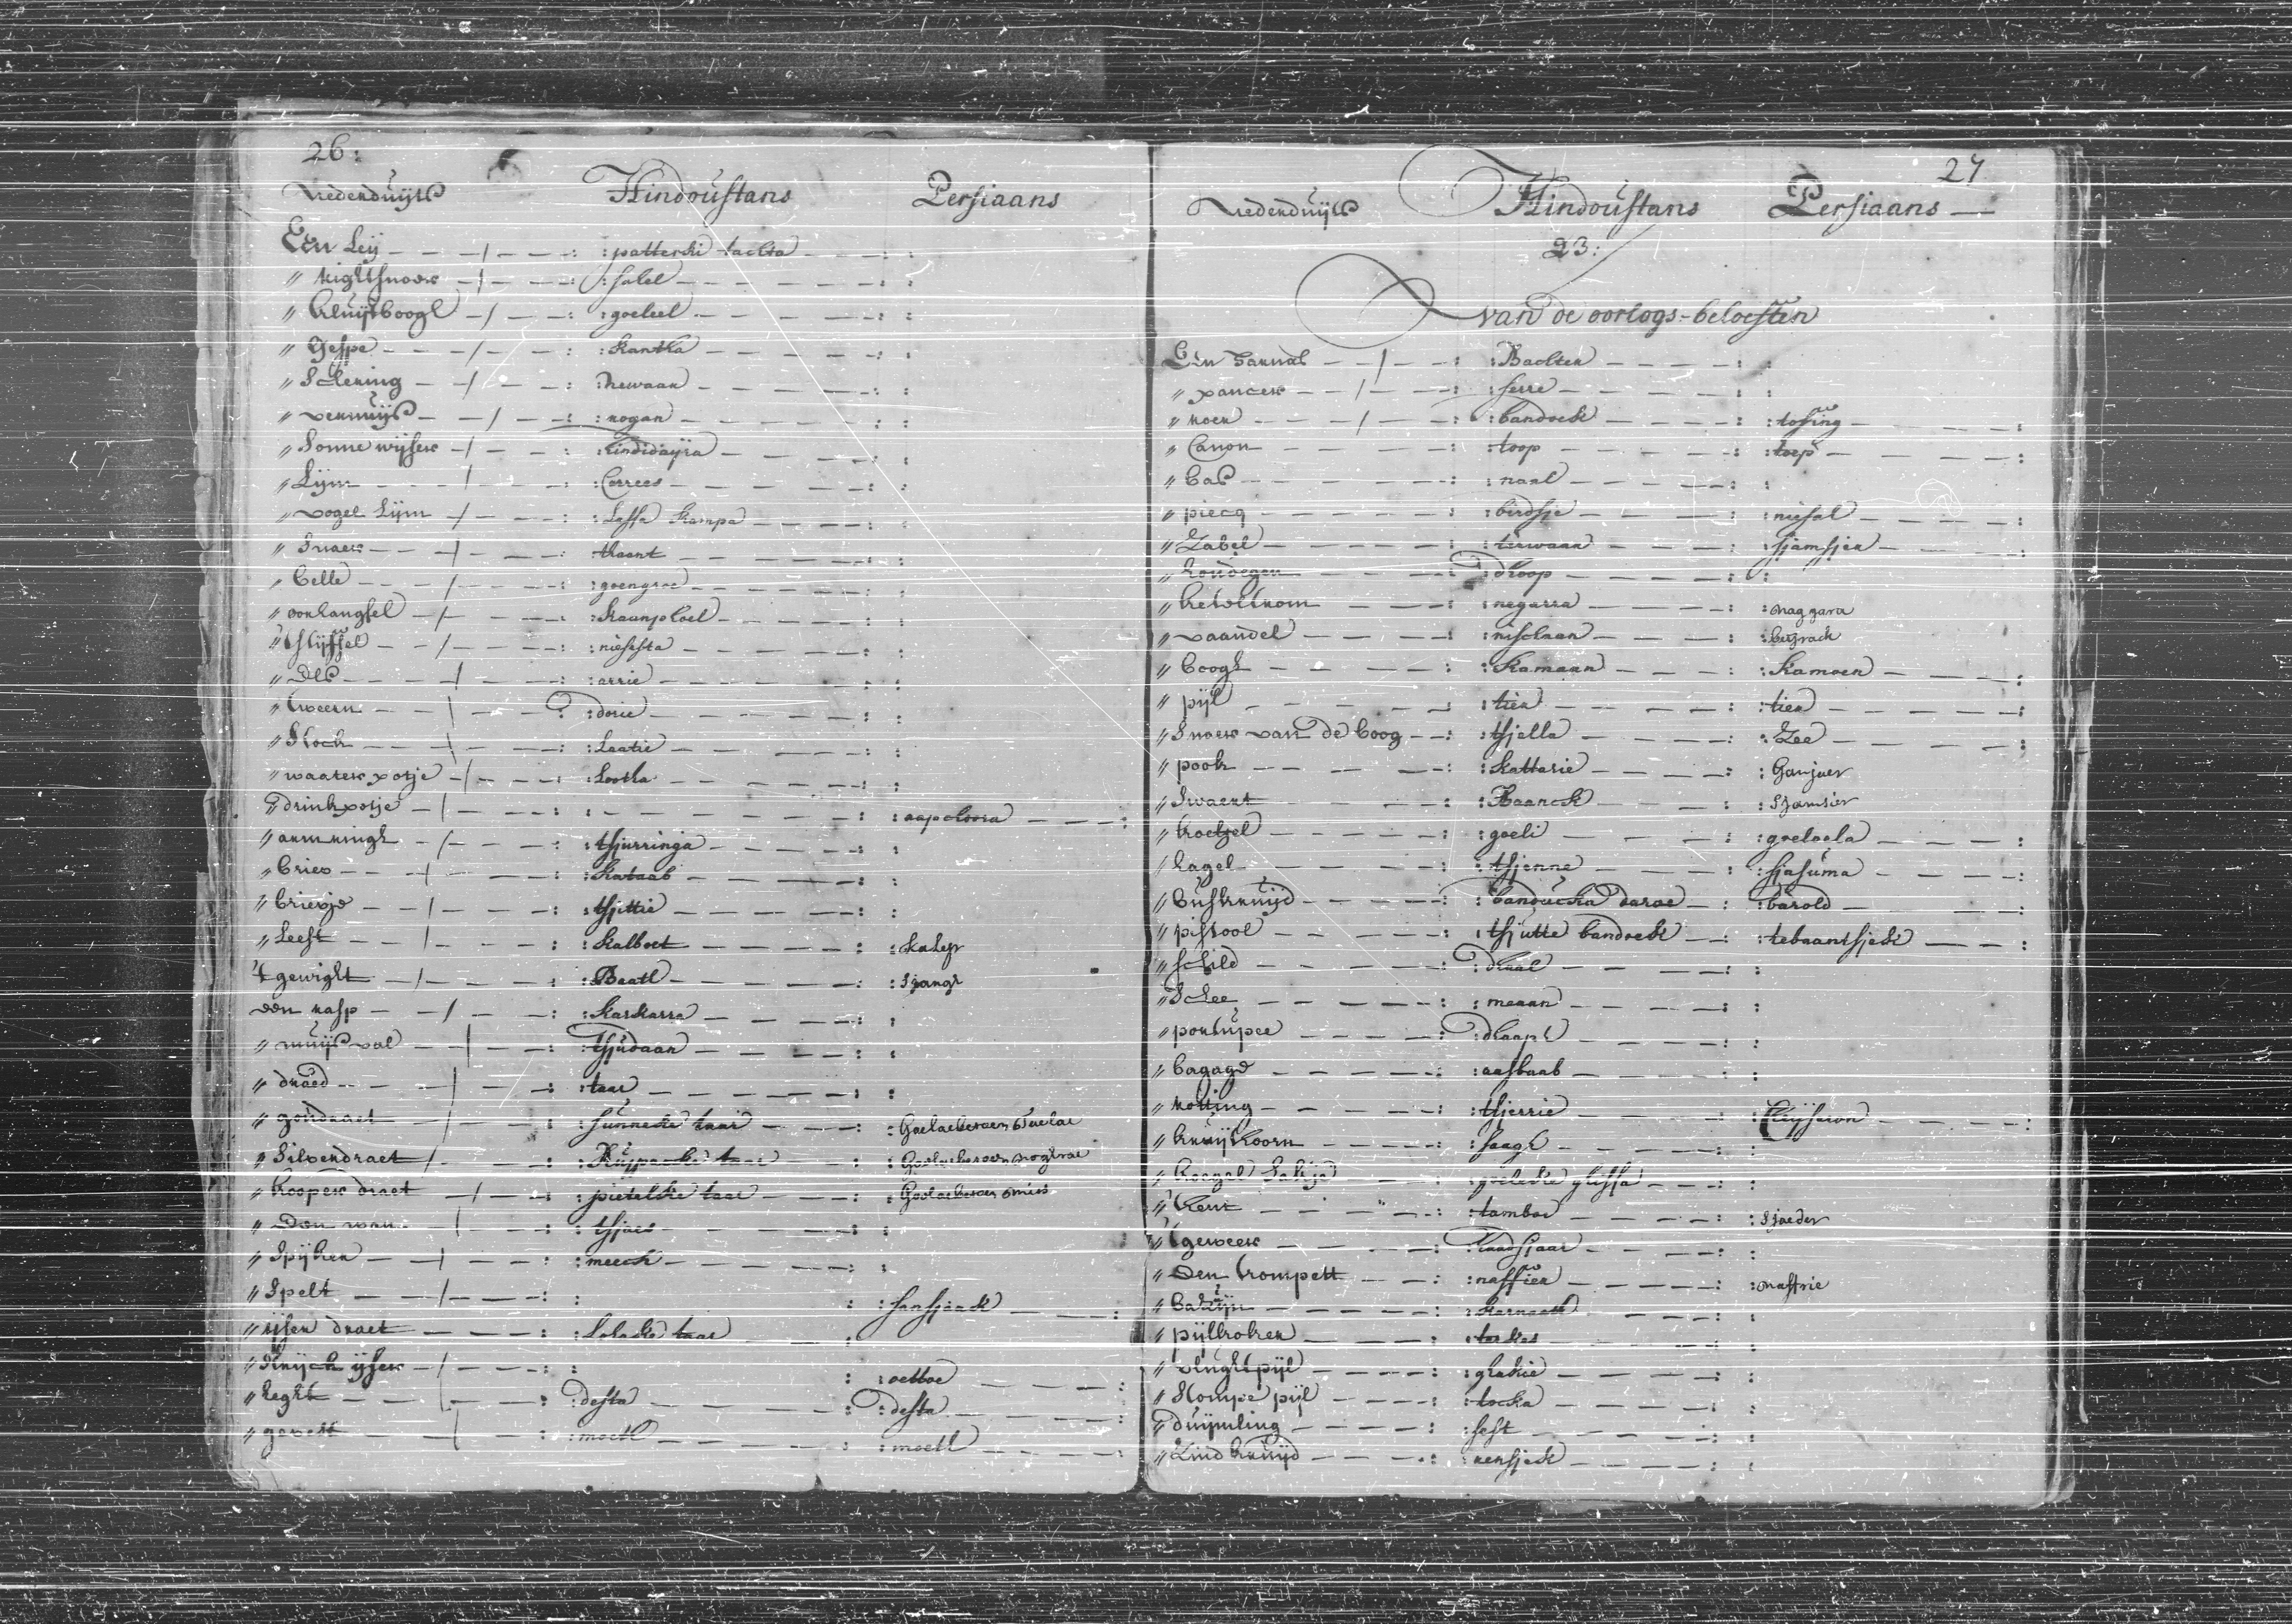 26:
Nederduijts Hindoustans Persiaans
Een Leij : patterki tachta
" Rigtsnoer : salel
" Kluijtboogh : goeleel
" Gespe : kantha
" Schering : rewaan
" vernuijs : rogan
" Sonne wijser : tindidaijra
" Lijm : Cerrees
" vogel Lijm : Lassa kampa
" Snaer : thaant
" belle : goengroe
" oorhangsel : kaanphoel
" Stijffel : niessta
" Els : arrie
" tweern : dorie
" Stock : Laatie
" waater potje : Lootha
" drinkpotje : : aapchora
" armringh : tsjurringa
" brief : kataab
" briefje : tsjittie
" Leest : kalboet : kaleb
't gewight : Baatl : Sjangh
een rasp : karkarra
" muijs val : tsjudaan
" draed : taar
" goudraet : sunneke taar
" Silverdraet : Ruppaeke taar
" kooper draet : pietelke taar
" Den wan : tsjaes
" Spijker : meech
" Spelt : : sansjaak
" ijser draet : Lohake taar
" Strijck ijser : : oettoe
" heght : desta : desta
" gevest : moetl : moetl
27
Nederduijts Hindoustans Persiaans
23:
van de oorlogs-behoeften
Een harnas : Bachter
" pancer : serre
" roer : bandoek : tofing
" Canon : toop : toep
" bas : naal
" piecq : birdsje : niesal
" Zabel : terwaar : sjamsjer
" houdegen : dhoop
" keteltrom : negarra : naggara
" vaandel : nischaan : beijrack
" boogh : kamaan : kamoen
" pijl : tier : tier
" Snaer van de boog : tsjella : Zee
" pook : kattarie : Ganjaer
" Swaert : Kaanck : Sjamsier
" koetgel : goeli : goeloela
" hagel : tsjenne : sjasuma
" buskruijd : banducka daroe : barold
" pistool : tsjutte bandoek : tebaantsjeck
" schild : dhaal
" Schee : meaan
" portupee : dhaaph
" bagage : aasbaab
" rotting : tsjerrie
" kruijthoorn : saagh
" koegel Sakje : goeleke ghissa
" tent : tamboe : Sjaeder
't geweer : haadsjaar
" Een trompett : naffier : naffrie
" basuijn : karnaeth
" pijlkoker : terkes
" vlught pijl : ghackie
" Stompe pijl : tocka
" duijmling : sest
" Zindkruijd : rensjeck